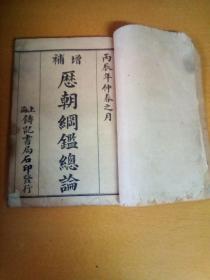 丙辰年仲春之月
增補
歷朝綱鑑總論
上海
鑄記書局石印發行